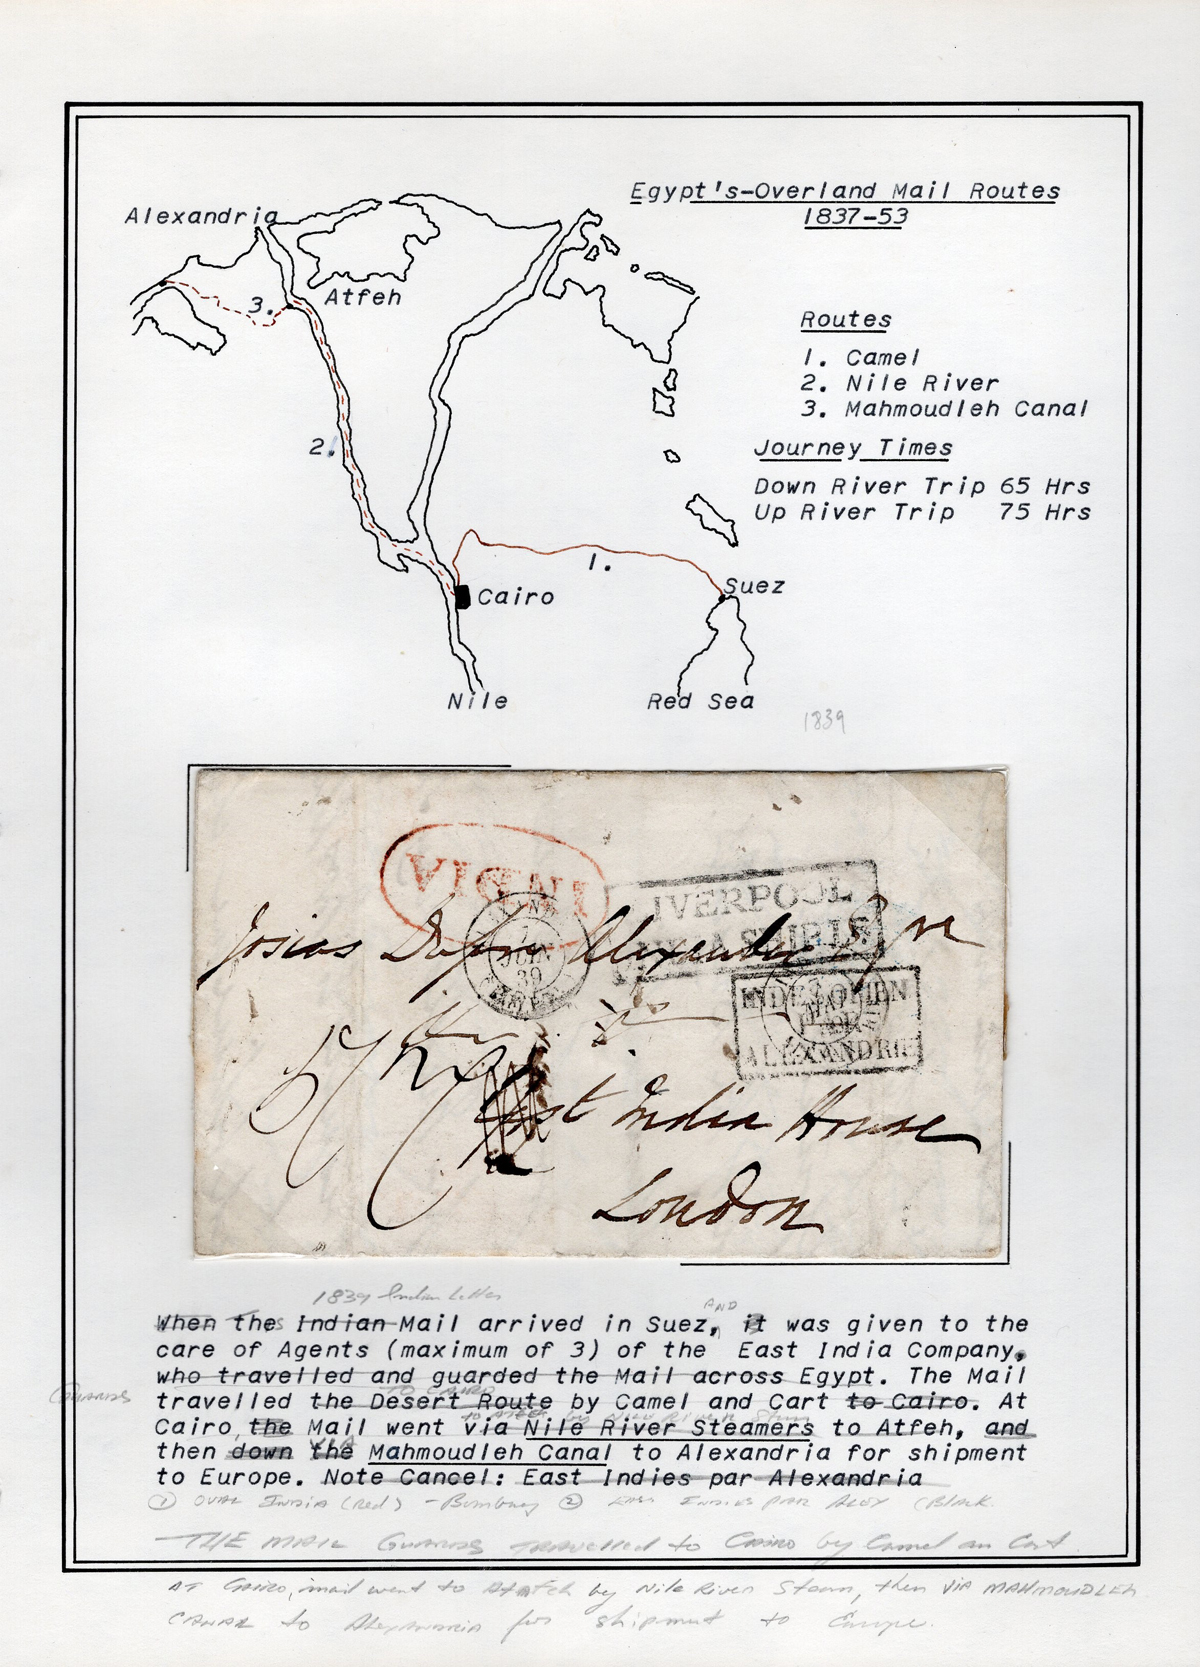 Egypt's-Overland Mail Routes
1837-53
Alexandria
Atfeh
3.
Routes
1. Camel
2. Nile River
3. Mahmoudleh Canal
2.
Journey Times
Down River Trip 65 Hrs
Up River Trip 75 Hrs
1.
Suez
Cairo
Nile
Red Sea
1839
INDIA
LIVERPOOL
INDIA SHIP LS
JUIN
39
Josias Alexander
INDES ORIEN
PAR
ALEXANDRIE
East India House
London
1839 Indian Letter
AND
When thes Indian Mail arrived in Suez, it was given to the
care of Agents (maximum of 3) of the East India Company,
who travelled and guarded the Mail across Egypt. The Mail
Guards
TO CAIRO
travelled the Desert Route by Camel and Cart to Cairo. At
to Atfeh by Nile River Steam
Cairo, the Mail went via Nile River Steamers to Atfeh, and
VIA
then down the Mahmoudleh Canal to Alexandria for shipment
to Europe. Note Cancel: East Indies par Alexandria
① OVAL INDIA (Red) - Bombay ② EAST INDIES PAR ALEX (Black
THE MAIL GUARDS TRAVELLED to CAIRO by Camel an Cart
AT CAIRO, mail went to Atfeh by Nile River Steam, then VIA MAHMOUDLEH
CANAL to Alexandria for shipment to Europe.